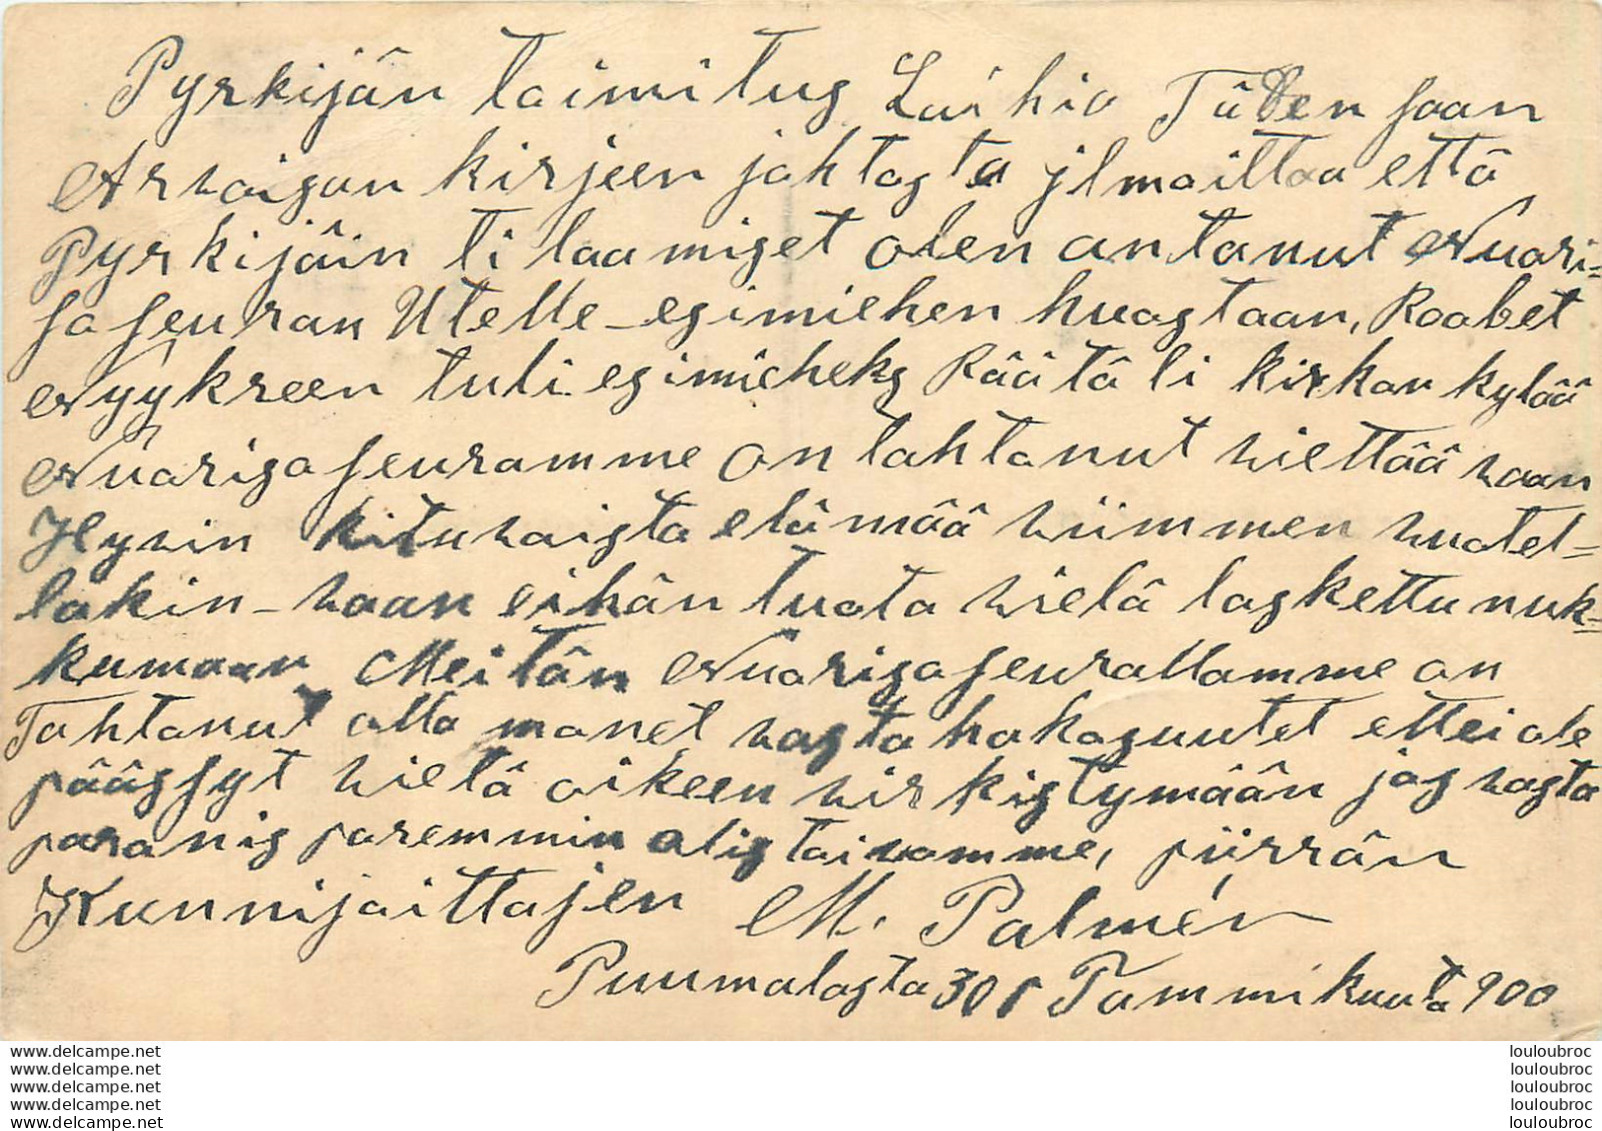 Pyrkijän toimitus Laihia Täten saan
Arvoisan kirjeen johtosta jlmoittaa että
Pyrkijäin tilaamiset olen antanut Nuori-
sa seuran Utelle-esimiehen huostaan, Roobet
Nyykreen tuli esimieheks Räätäli kirkon kylää
Nuorisaseuramme on tahtonut wiettää waan
Hywin kituwaista elämää wiimmen wuotel-
lakin-waan eihän tuota wielä laskettu nuk-
kumaan Meitän Nuorisaseurallamme on
Tahtonut olla monet wasta hakasuutet ettei ole
päässyt wielä oikeen wirkistymään jos wasta
paranis paremmin olis toiwomme, piirrän
Kunnijoittajen M. Palmén
Puumalasta 30 p Tammikuuta 900
www.delcampe.net
www.delcampe.net
www.delcampe.net
www.delcampe.net
www.delcampe.net
louloubroc
louloubroc
louloubroc
louloubroc
louloubroc